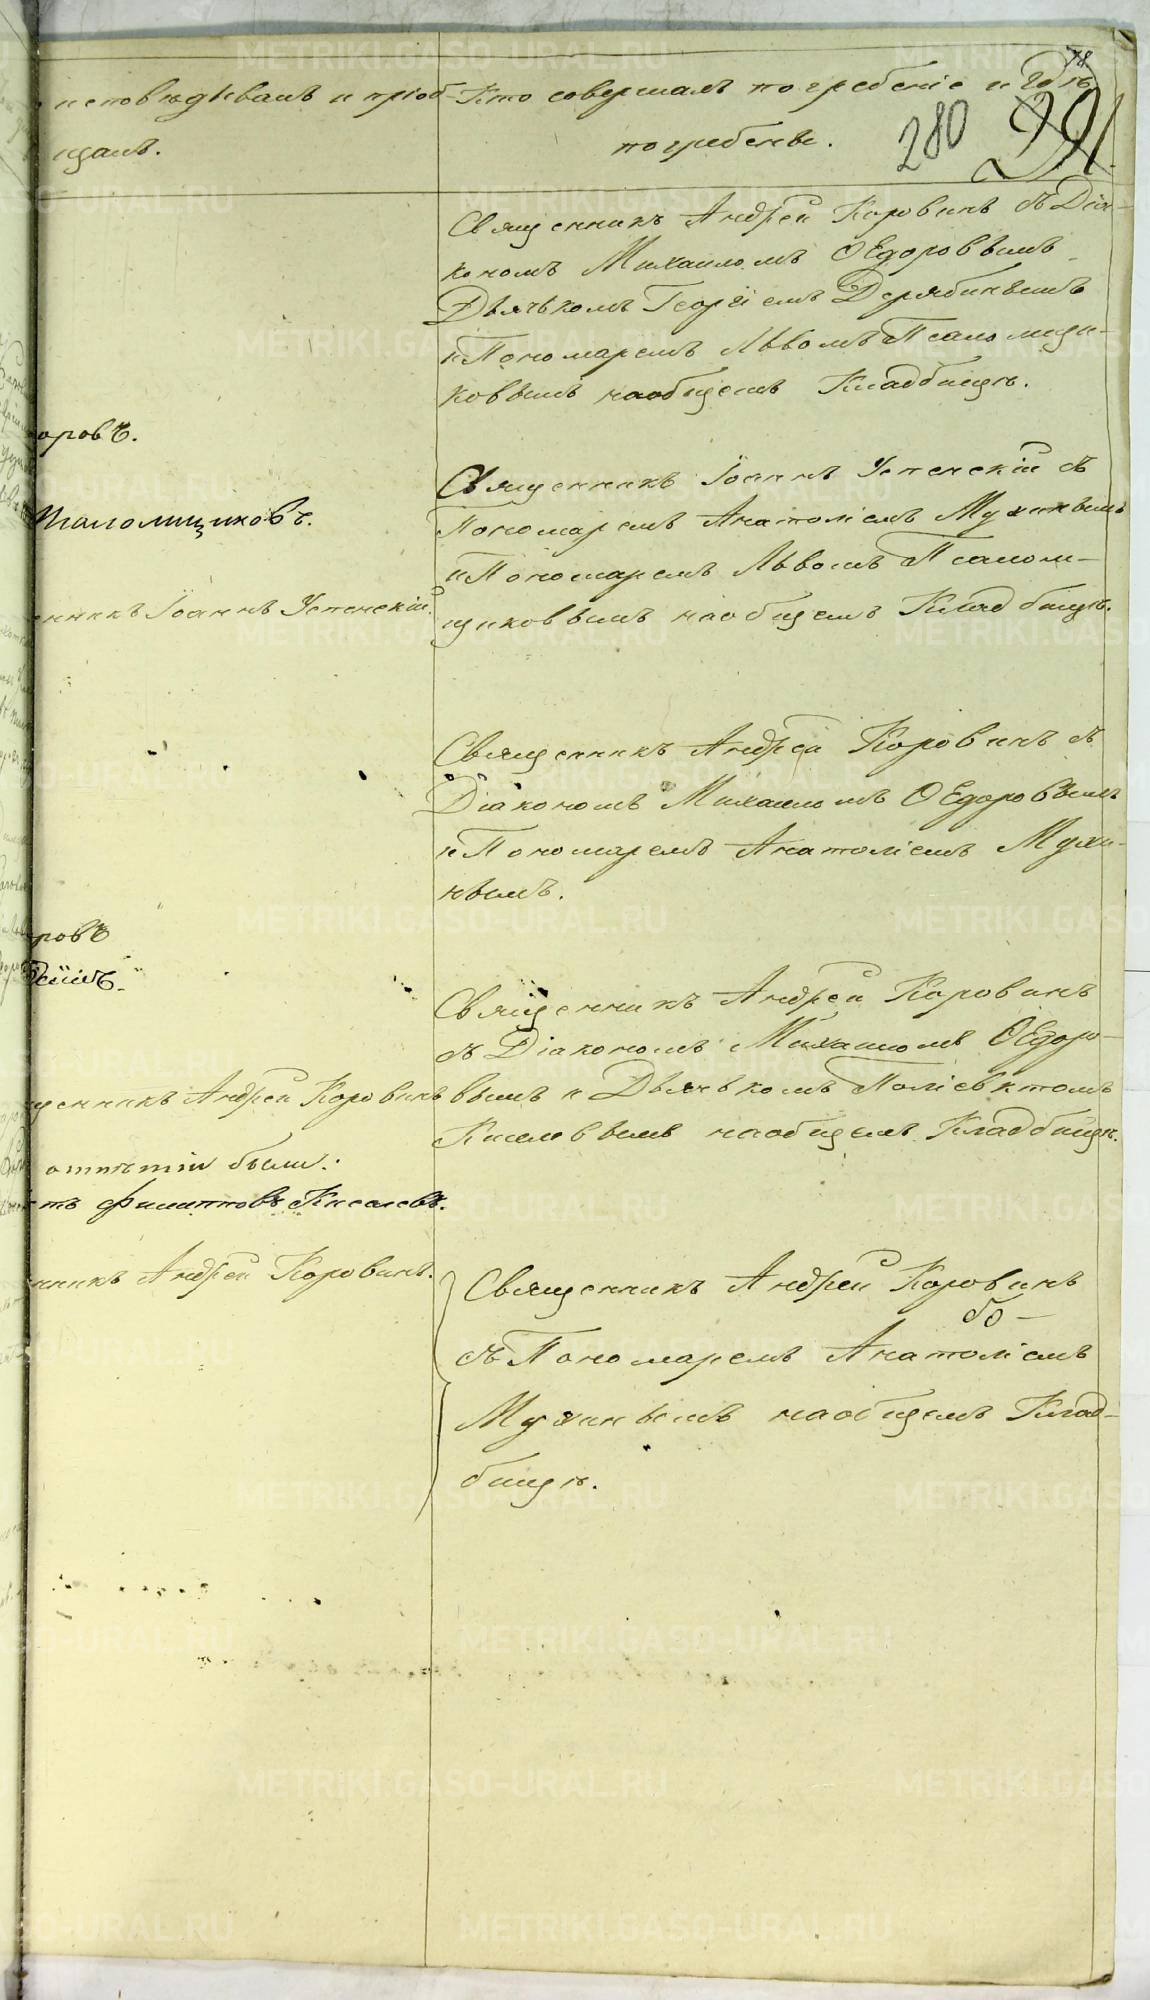 исповѣдывалъ и пріоб-
щалъ.
Кто совершалъ погребеніе и гдѣ
погребены.
280
Священникъ Андрей Коровинъ съ Діа-
кономъ Михаиломъ Ѳедоровымъ
Дьячькомъ Георгіемъ Дерябинымъ
и Пономаремъ Львомъ Псаломщи-
ковымъ на общемъ Кладбищѣ.
оровъ.
Псаломщиковъ.
Священникъ Іоаннъ Успенскій съ
Пономаремъ Анатоліемъ Мухинымъ
и Пономаремъ Львомъ Псалом-
щиковымъ на общемъ Кладбищѣ.
енникъ Іоаннъ Успенскій.
Священникъ Андрей Коровинъ съ
Діакономъ Михаиломъ Ѳедоровымъ
и Пономаремъ Анатоліемъ Мухи-
нымъ.
ровъ
Священникъ Андрей Коровинъ
съ Діакономъ Михаиломъ Ѳедоро-
вымъ и Дьячькомъ Поліевктомъ
Киселовымъ на общемъ Кладбищѣ.
щенникъ Андрей Коровинъ
отпѣтіи были:
тъ Филипповъ Киселевъ.
нникъ Андрей Коровинъ.
Священникъ Андрей Коровинъ
съ Пономаремъ Анатоліемъ
Мухинымъ на общемъ Клад-
бищѣ.
METRIKI.GASO-URAL.RU